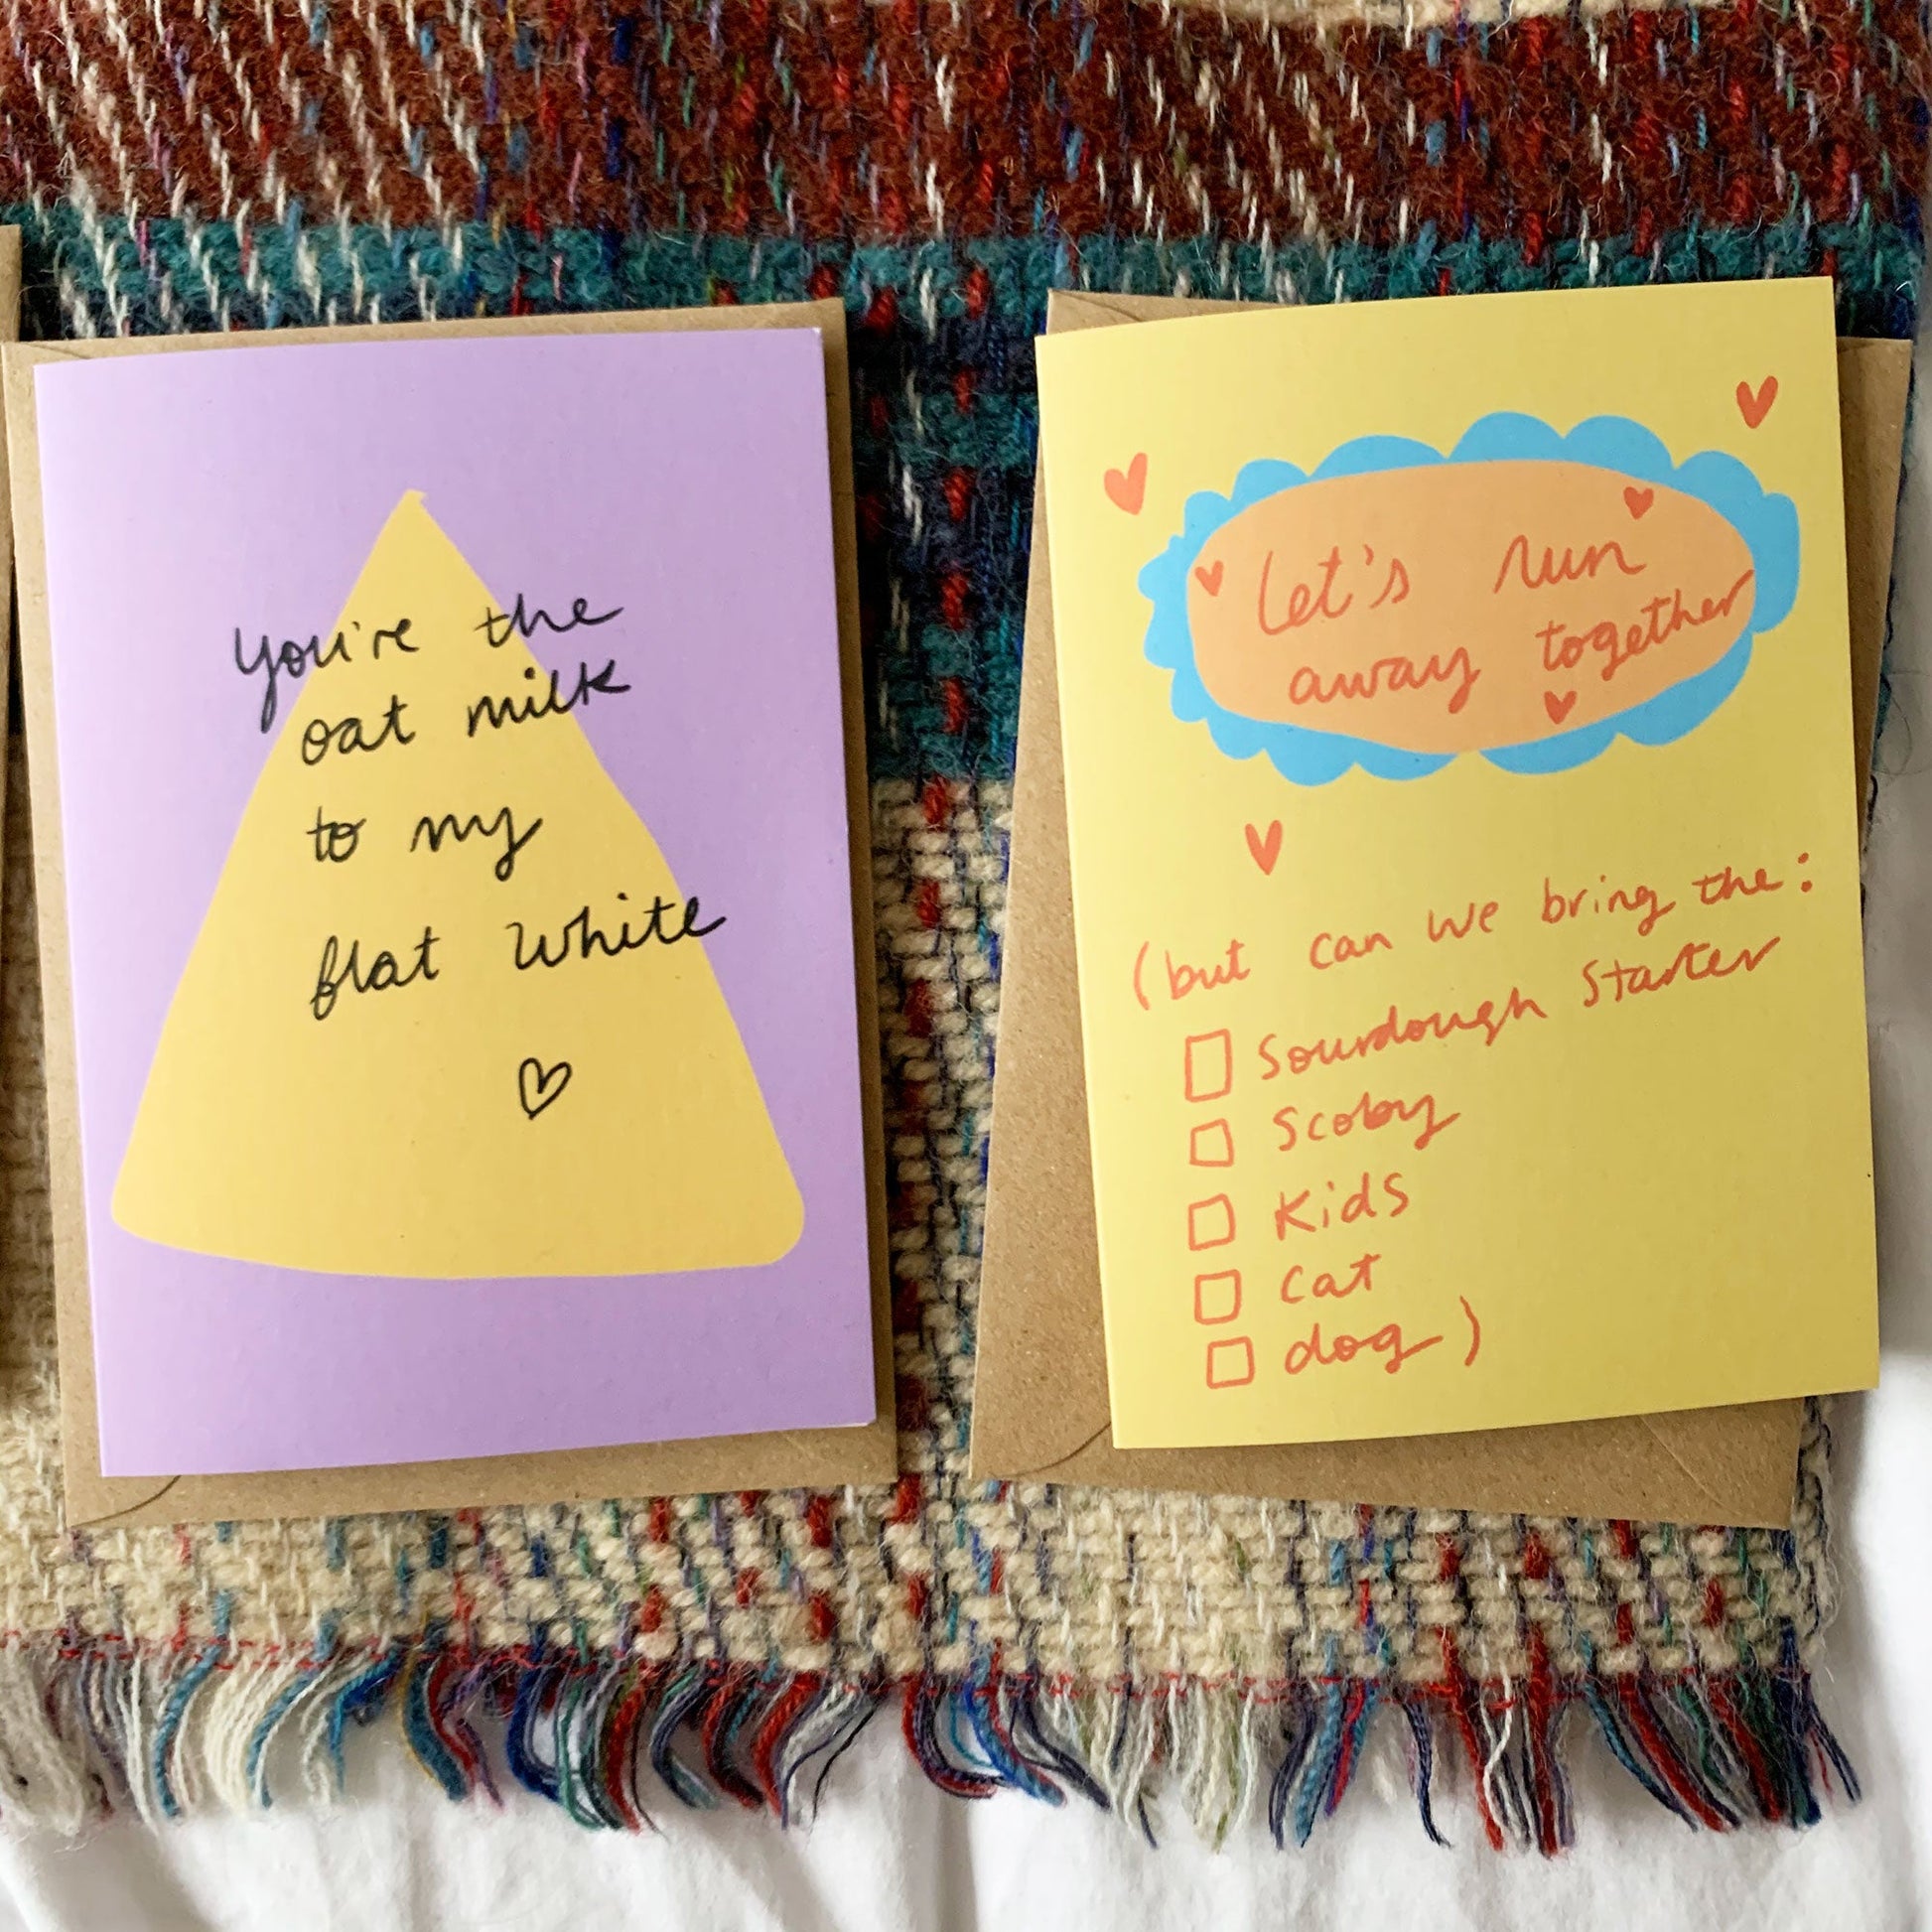 You're the
oat milk
to my
flat white
Let's run
away together
(but can we bring the:
Sourdough Starter
Scoby
Kids
Cat
dog)